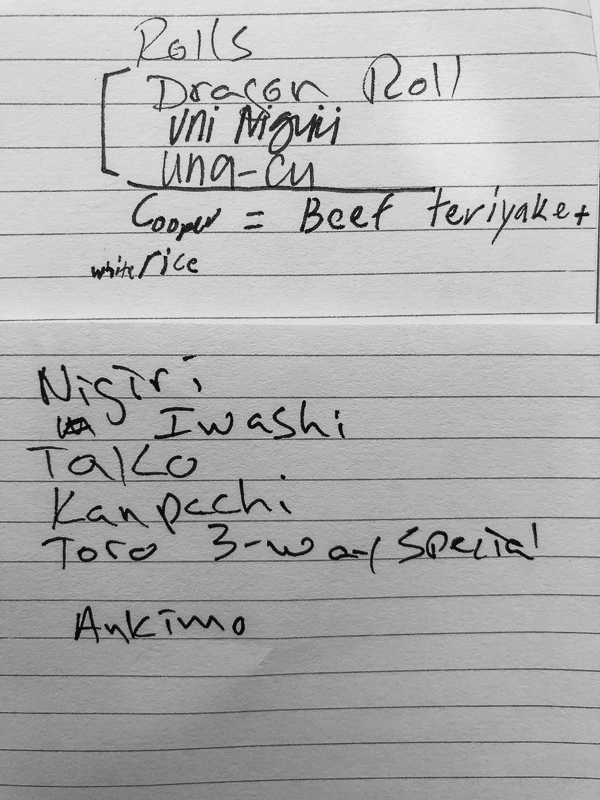 Rolls
Dragon Roll
uni Niguiri
una-cu
Cooper = Beef teriyake +
white rice
Nigiri
Iwashi
Tako
Kanpachi
Toro 3-way special
Ankimo